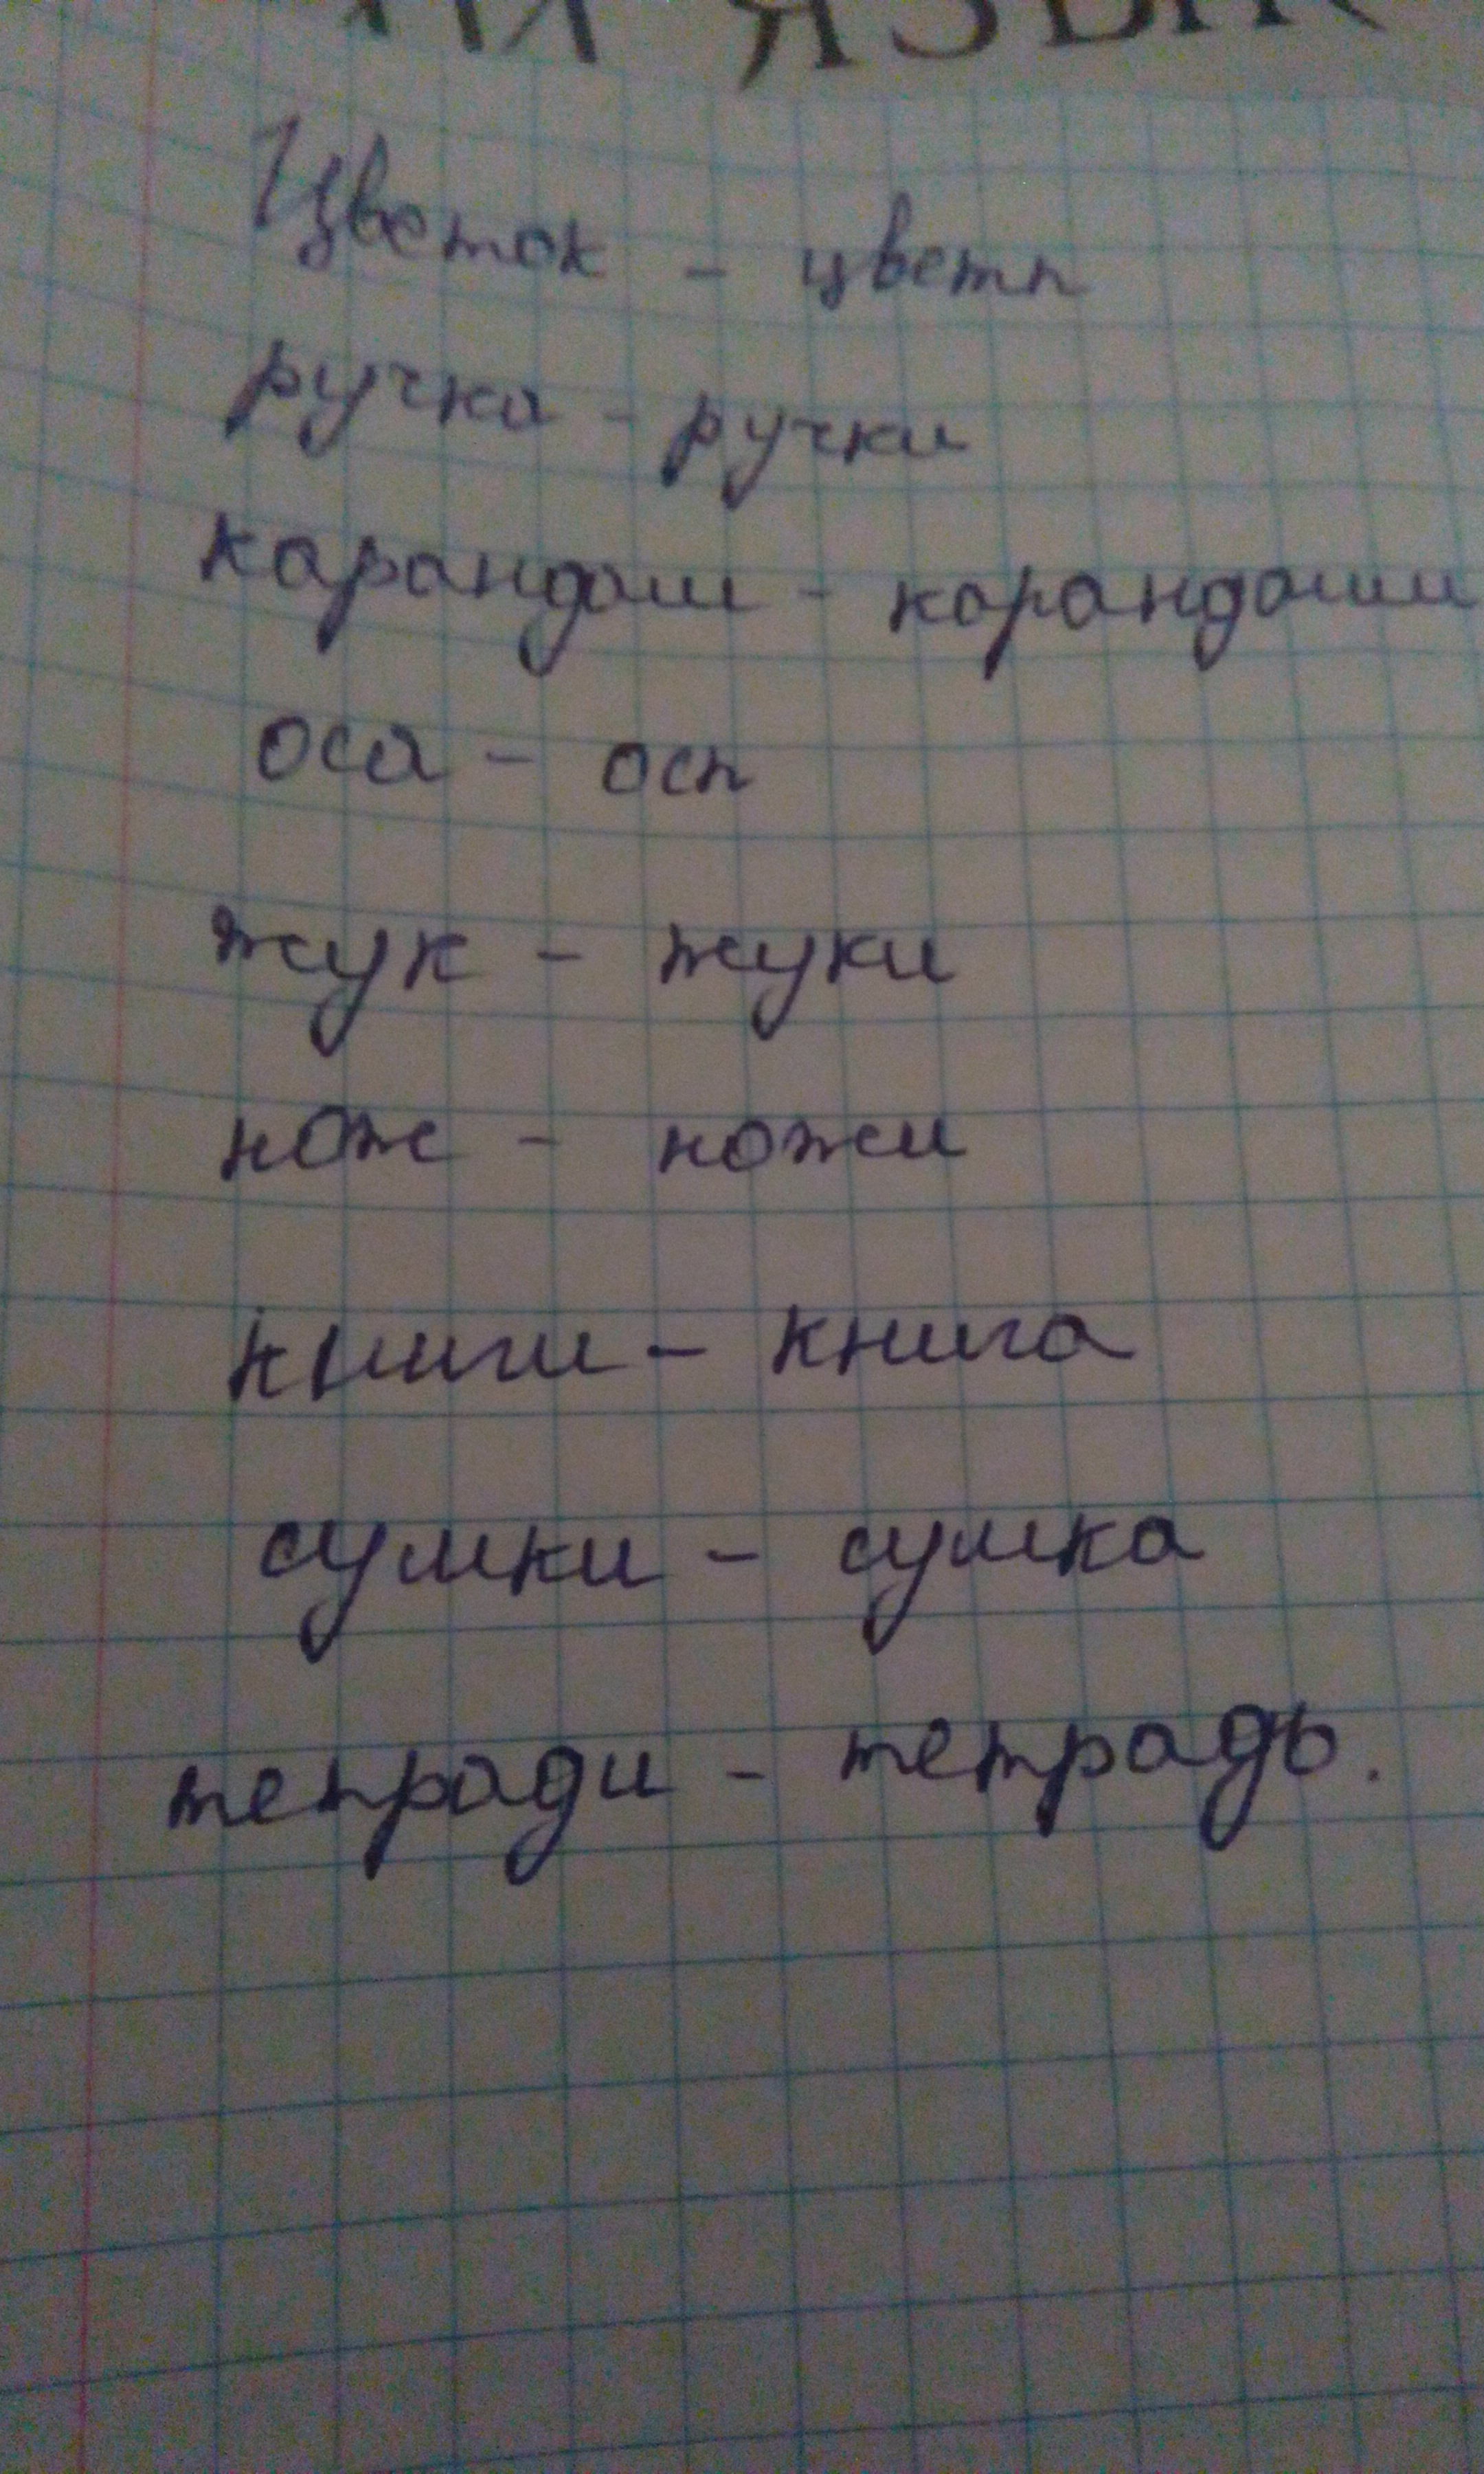 Цветок - цветы
ручка - ручки
карандаш - карандаши
оса - осы
жук - жуки
нож - ножи
книги - книга
сумки - сумка
тетради - тетрадь.